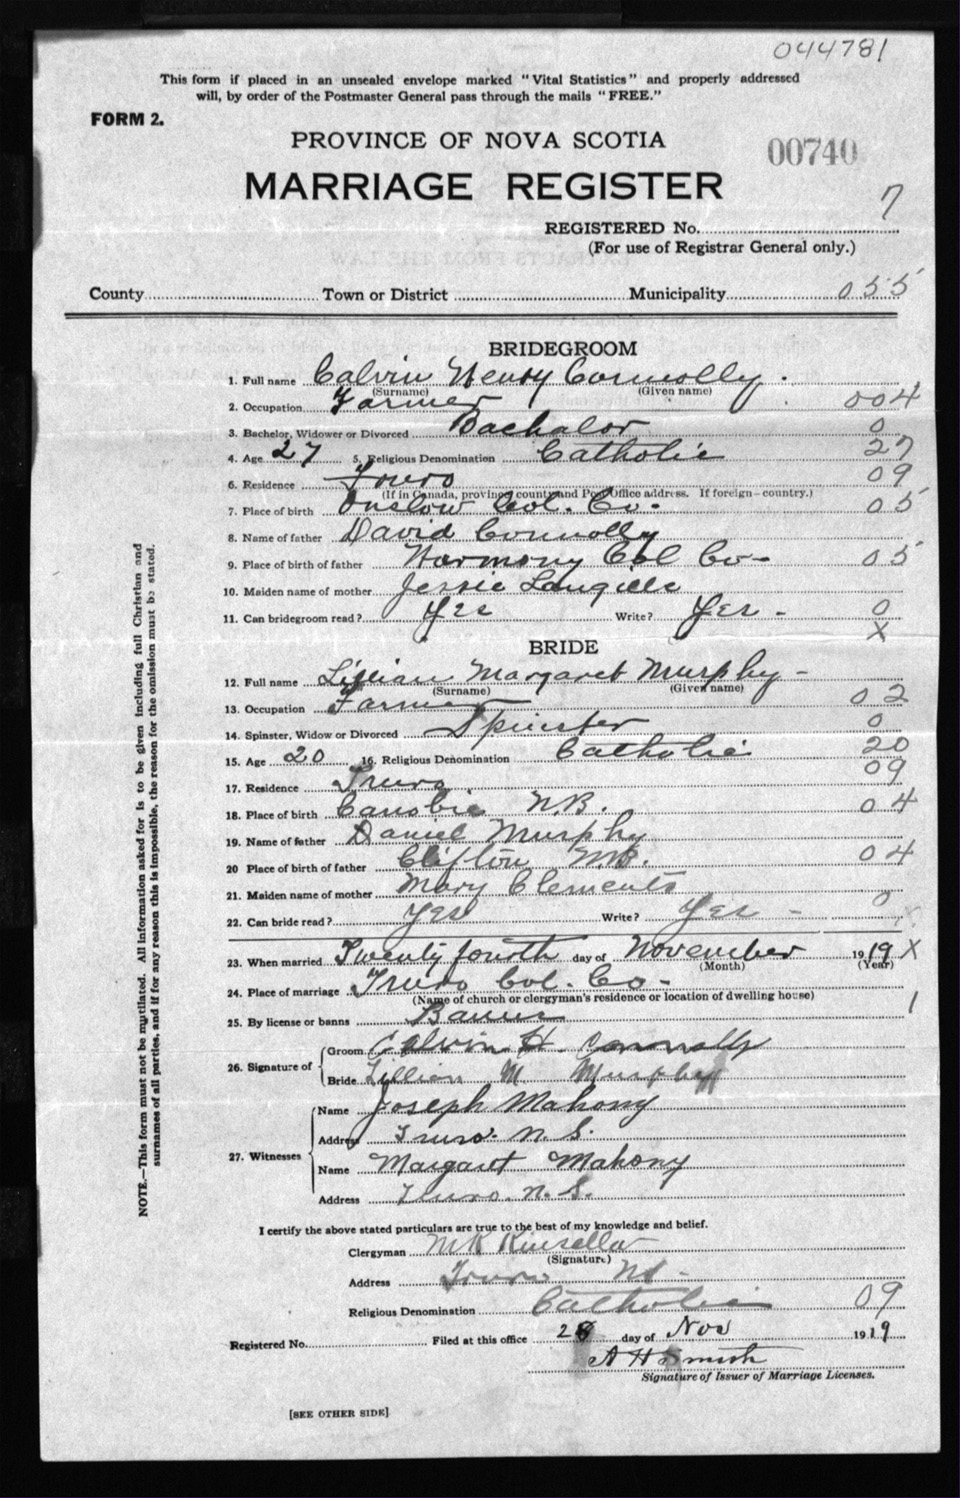 044781
This form if placed in an unsealed envelope marked "Vital Statistics" and properly addressed
will, by order of the Postmaster General pass through the mails "FREE."
FORM 2.
PROVINCE OF NOVA SCOTIA
00740
MARRIAGE REGISTER
7
REGISTERED No.
(For use of Registrar General only.)
County Town or District Municipality 055
BRIDEGROOM
1. Full name Calvin Henry Connolly.
(Surname) (Given name)
2. Occupation Farmer 004
3. Bachelor, Widower or Divorced Bachalor 0
4. Age 27 5. Religious Denomination Catholic 27
6. Residence Truro 09
(If in Canada, province county and Post Office address. If foreign - country.)
7. Place of birth Onslow Col. Co. 05
8. Name of father David Connolly
9. Place of birth of father Harmony Col Co- 05
10. Maiden name of mother Jessie Langille
11. Can bridegroom read? Yes Write? Yes - 0
X
BRIDE
12. Full name Lillian Margaret Murphy -
(Surname) (Given name)
13. Occupation Farmer 02
14. Spinster, Widow or Divorced Spinster 0
15. Age 20 16. Religious Denomination Catholic 20
17. Residence Truro 09
18. Place of birth Canobie N.B. 04
19. Name of father Daniel Murphy
20 Place of birth of father Clifton NB. 04
21. Maiden name of mother Mary Clements
22. Can bride read? Yes Write? Yes - 0
23. When married Twenty fourth day of November 1919 X
(Month) (Year)
24. Place of marriage Truro Col. Co-
(Name of church or clergyman's residence or location of dwelling house)
25. By license or banns Banns 1
26. Signature of Groom Calvin H. Connolly
Bride Lillian M Murphy
27. Witnesses Name Joseph Mahony
Address Truro. N.S.
Name Margaret Mahony
Address Truro. N.S.
NOTE.—This form must not be mutilated. All information asked for is to be given including full Christian and
surnames of all parties, and if for any reason this is impossible, the reason for the omission must be stated.
I certify the above stated particulars are true to the best of my knowledge and belief.
Clergyman Kinsella
(Signature)
Address Truro NS-
Religious Denomination Catholic 09
Registered No. Filed at this office day of Nov 1919
A H Smith
Signature of Issuer of Marriage Licenses.
[SEE OTHER SIDE]